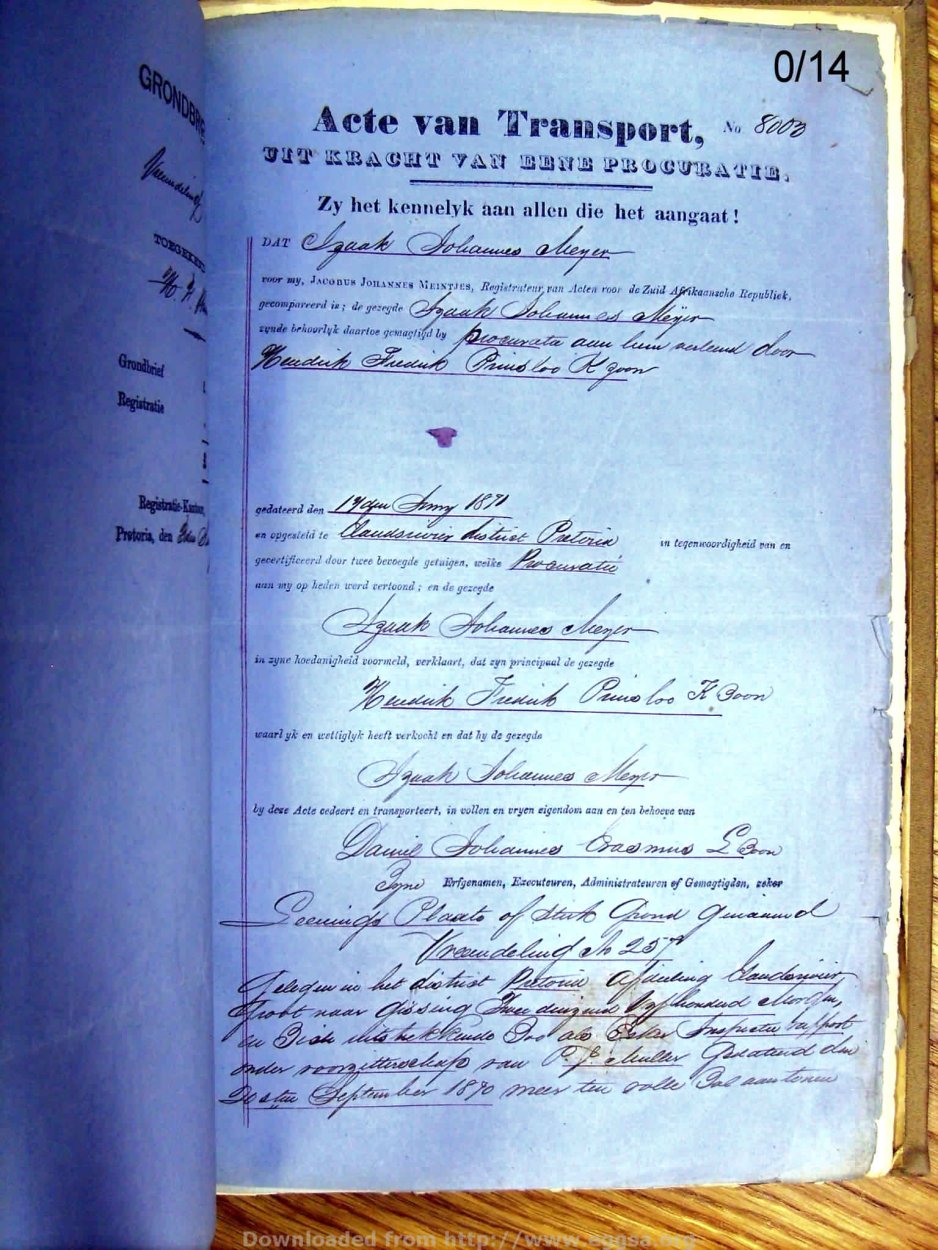 0/14
GRONDBR
Acte van Transport, No 8003
UIT KRACHT VAN EENE PROCURATIE.
Zy het kennelyk aan allen die het aangaat!
DAT Izaak Johannes Meyer
voor my, JACOBUS JOHANNES MEINTJES, Registrateur van Acten voor de Zuid Afrikaansche Republiek,
gecompareerd is; de gezegde Izaak Johannes Meyer
zynde behoorlyk daartoe gemagtigd by procuratie aan hem verleend door
Hendrik Fredrik Prinsloo K zoon
gedateerd den 1871
en opgesteld te Elandsrivier district Pretoria in tegenwoordigheid van en
gecertificeerd door twee bevoegde getuigen, welke Procuratie
aan my op heden werd vertoond; en de gezegde
Izaak Johannes Meyer
in zyne hoedanigheid voormeld, verklaart, dat zyn principaal de gezegde
Hendrik Fredrik Prinsloo K Zoon
waarlyk en wettiglyk heeft verkocht en dat hy de gezegde
Izaak Johannes Meyer
by deze Acte cedeert en transporteert, in vollen en vryen eigendom aan en ten behoeve van
Daniel Johannes Erasmus L Zoon
Zyne Erfgenamen, Executeuren, Administrateuren of Gemagtigden, zeker
Leenings Plaats of Stuk Grond Genaamd
Vreemdeling No 257
Gelegen in het district Pretoria Afdeeling Elandsrivier
Groot naar Gissing Twee duizend Vyfhonderd Morgen,
en Zich uitstrekkende Zoo als Zeker Inspectie rapport
onder voorzitterschap van P. J. Muller Gedateerd den
September 1870 meer ten volle Zal aantonen
TOEGEKEND
Grondbrief
Registratie
Registratie-Kantoor,
Pretoria, den
Downloaded from http://www.eggsa.org